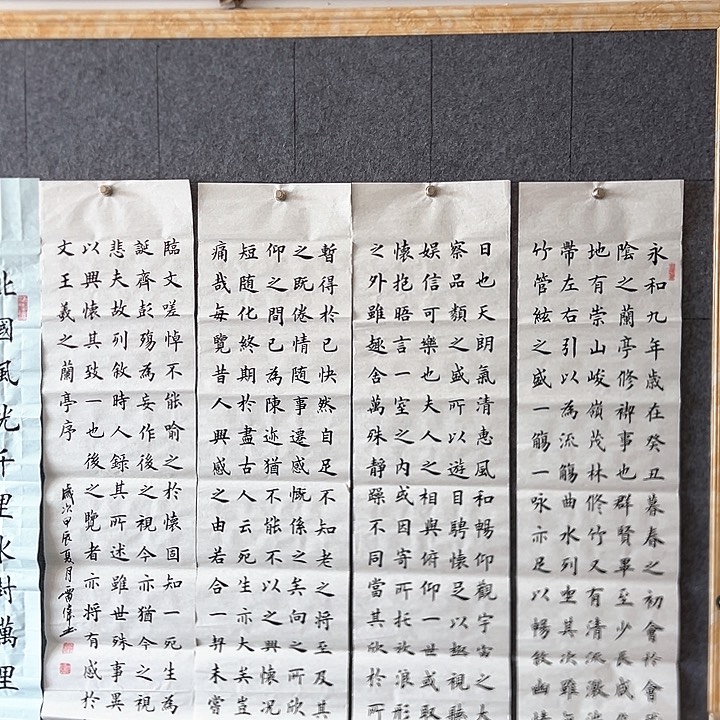 永和九年歲在癸丑暮春之初會於會
陰之蘭亭修禊事也群賢畢至少長咸
地有崇山峻嶺茂林修竹又有清流激
帶左右引以為流觴曲水列坐其次雖無
竹管絃之盛一觴一咏亦足以暢敘幽情
日也天朗氣清惠風和暢仰觀宇宙之大
察品類之盛所以遊目騁懷足以極視聽
娛信可樂也夫人之相與俯仰一世或取
懷抱晤言一室之內或因寄所托放浪形
之外雖趣舍萬殊靜躁不同當其欣於所
暫得於己快然自足不知老之將至及其
之既倦情随事遷感慨係之矣向之所欣
仰之間已為陳迹猶不能不以之興懷況
短随化終期於盡古人云死生亦大矣豈
痛哉每覽昔人興感之由若合一契未嘗
臨文嗟悼不能喻之於懷固知一死生為
誕齊彭殤為妄作後之視今亦猶今之視
悲夫故列敘時人録其所述雖世殊事異
以興懷其致一也後之覽者亦將有感於
文王羲之蘭亭序
歲次甲辰夏月
北國風光千里冰封萬里